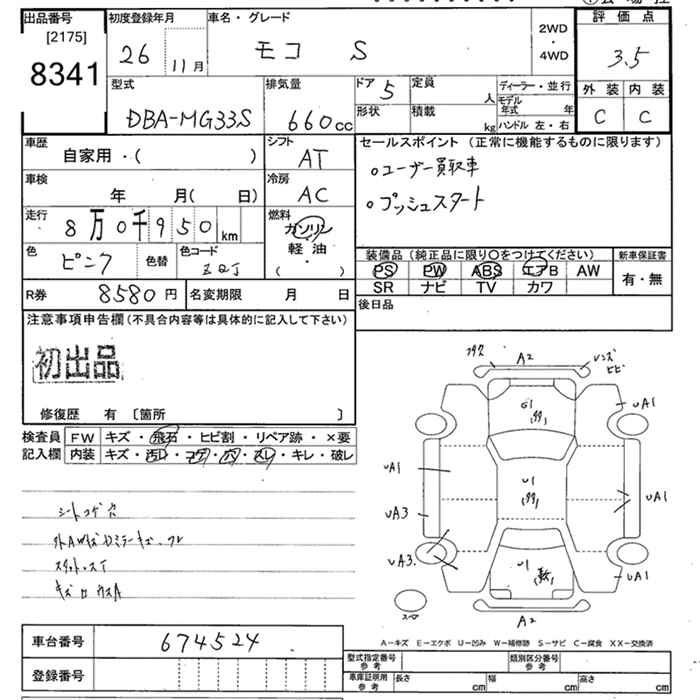 出品番号
[2175]
8341
初度登録年月
26 11月
車名・グレード
モコ S
2WD
・
4WD
評価点
3.5
外装 内装
C C
型式
DBA-MG33S
排気量
660cc
ドア 5
形状
定員 人
積載 kg
ディーラー・並行
モデル年式 年
ハンドル 左・右
車歴
自家用・( )
シフト
AT
セールスポイント (正常に機能するものに限ります)
。ユーザー買取車
。プッシュスタート
車検
年 月( 日)
冷房
AC
走行
8万0千950km
燃料
ガソリン
軽油
( )
色
ピンク
色替
色コード
装備品(純正品に限り〇をつけてください)
PS PW ABS エアB AW
SR ナビ TV カワ
新車保証書
有・無
R券 8580円
名変期限 月 日
後日品
注意事項申告欄(不具合内容等は具体的に記入して下さい)
初出品
修復歴 有 〔箇所 〕
検査員
記入欄
FW キズ・飛石・ヒビ割・リペア跡・×要
内装 キズ・汚レ・コゲ・穴・スレ・キレ・破レ
シートコゲ穴
A2
レンズ
ヒビ
UA1
G1
UA1
U1
UA1
UA3
UA3.
U1
UA1
A2
スペア
A-キズ E-エクボ U-凹み W-補修跡 S-サビ C-腐食 XX-交換済
車台番号 674524
登録番号
型式指定番号
参考
類別区分番号
参考
車庫証明用
参考
長さ cm 幅 cm 高さ cm